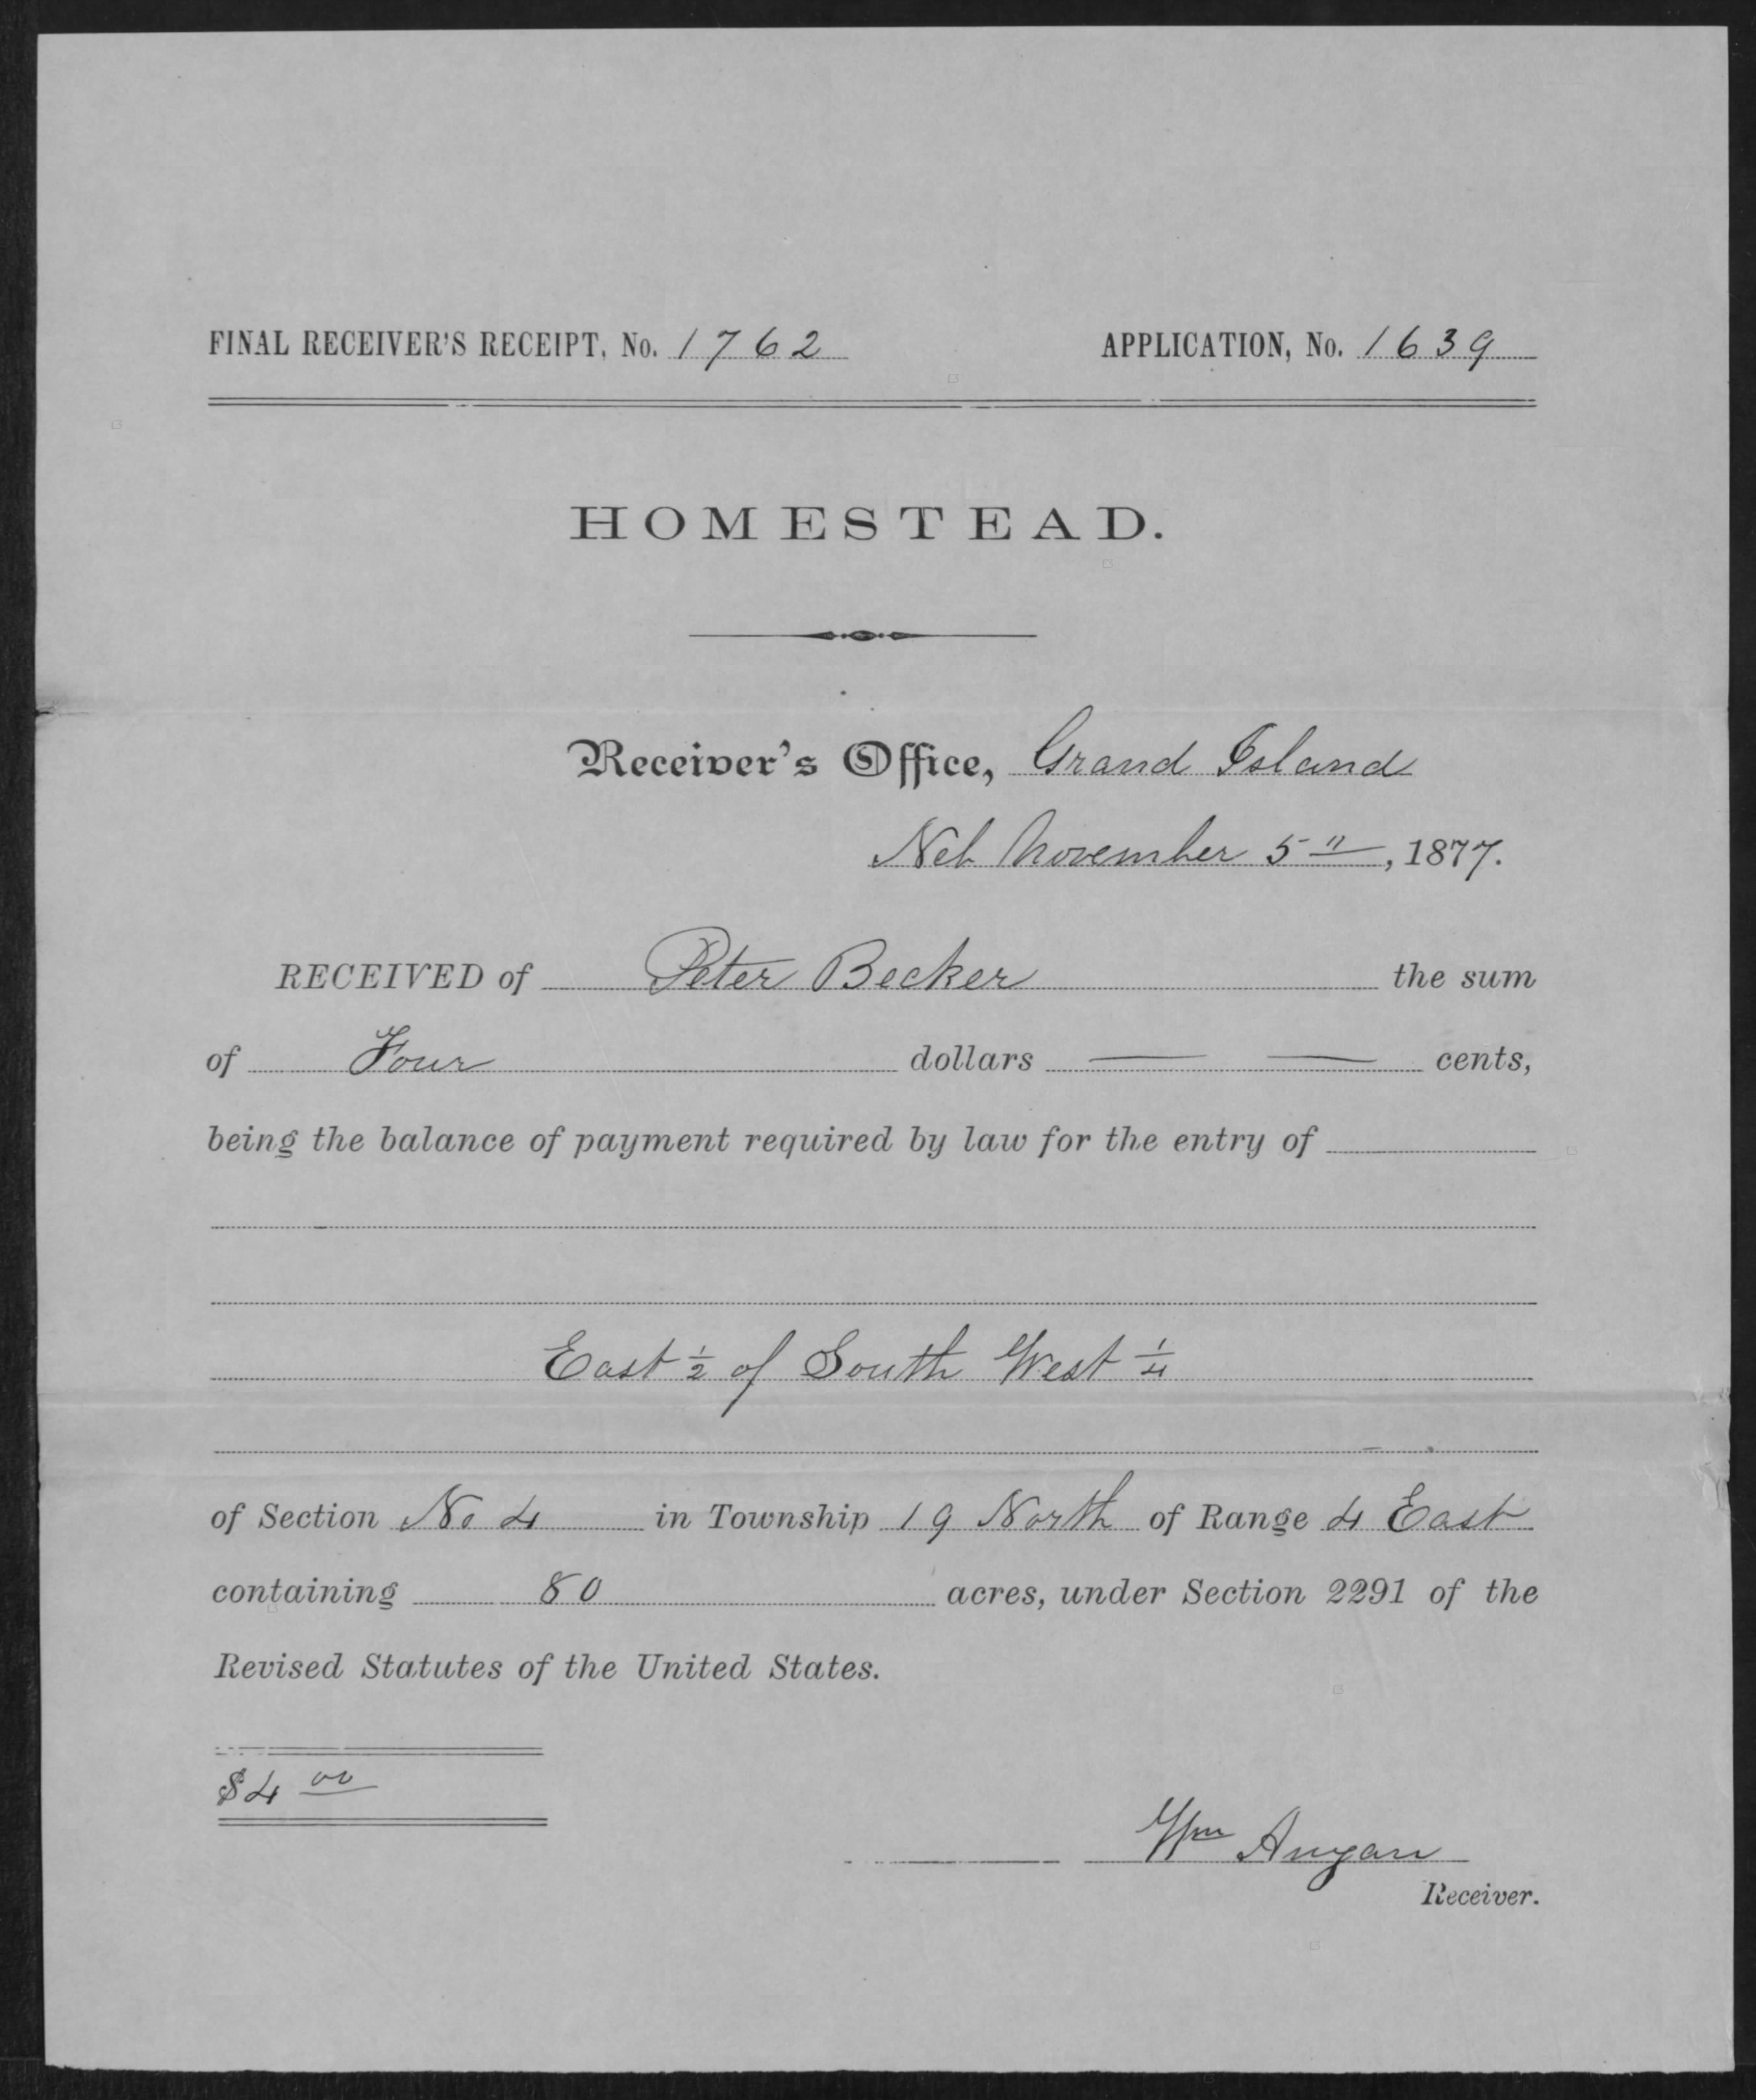 FINAL RECEIVER'S RECEIPT, No. 1762 APPLICATION, No. 1639
HOMESTEAD.
Receiver's Office, Grand Island
Neb November 5", 1877.
RECEIVED of Peter Becker the sum
of Four dollars — — cents,
being the balance of payment required by law for the entry of
East ½ of South West ¼
of Section No 4 in Township 19 North of Range 4 East
containing 80 acres, under Section 2291 of the
Revised Statutes of the United States.
$4 00
Wm Anyan
Receiver.